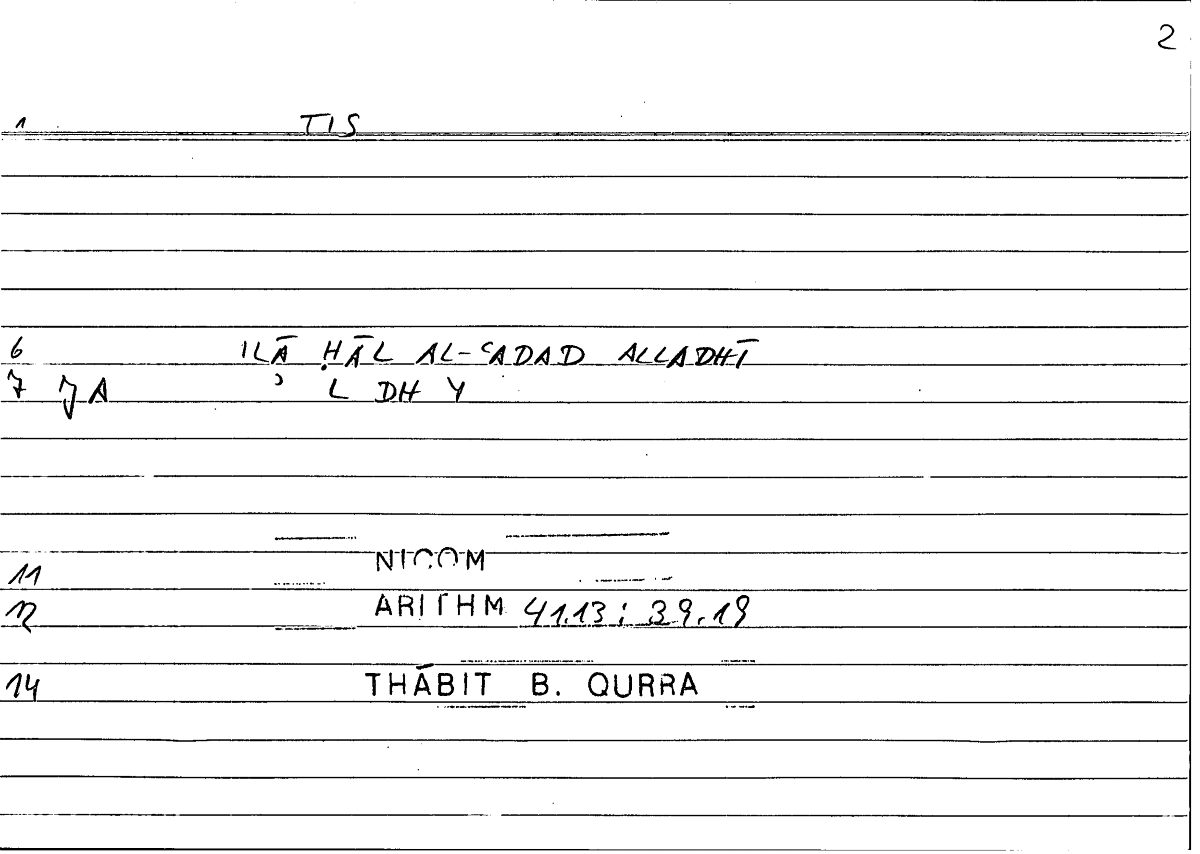 2
1 TIS
6 ILĀ ḤĀL AL-ʿADAD ALLADHĪ
7 JA ʾ L DH Y
11 NICOM
12 ARITHM 41.13 ; 39.19
14 THĀBIT B. QURRA